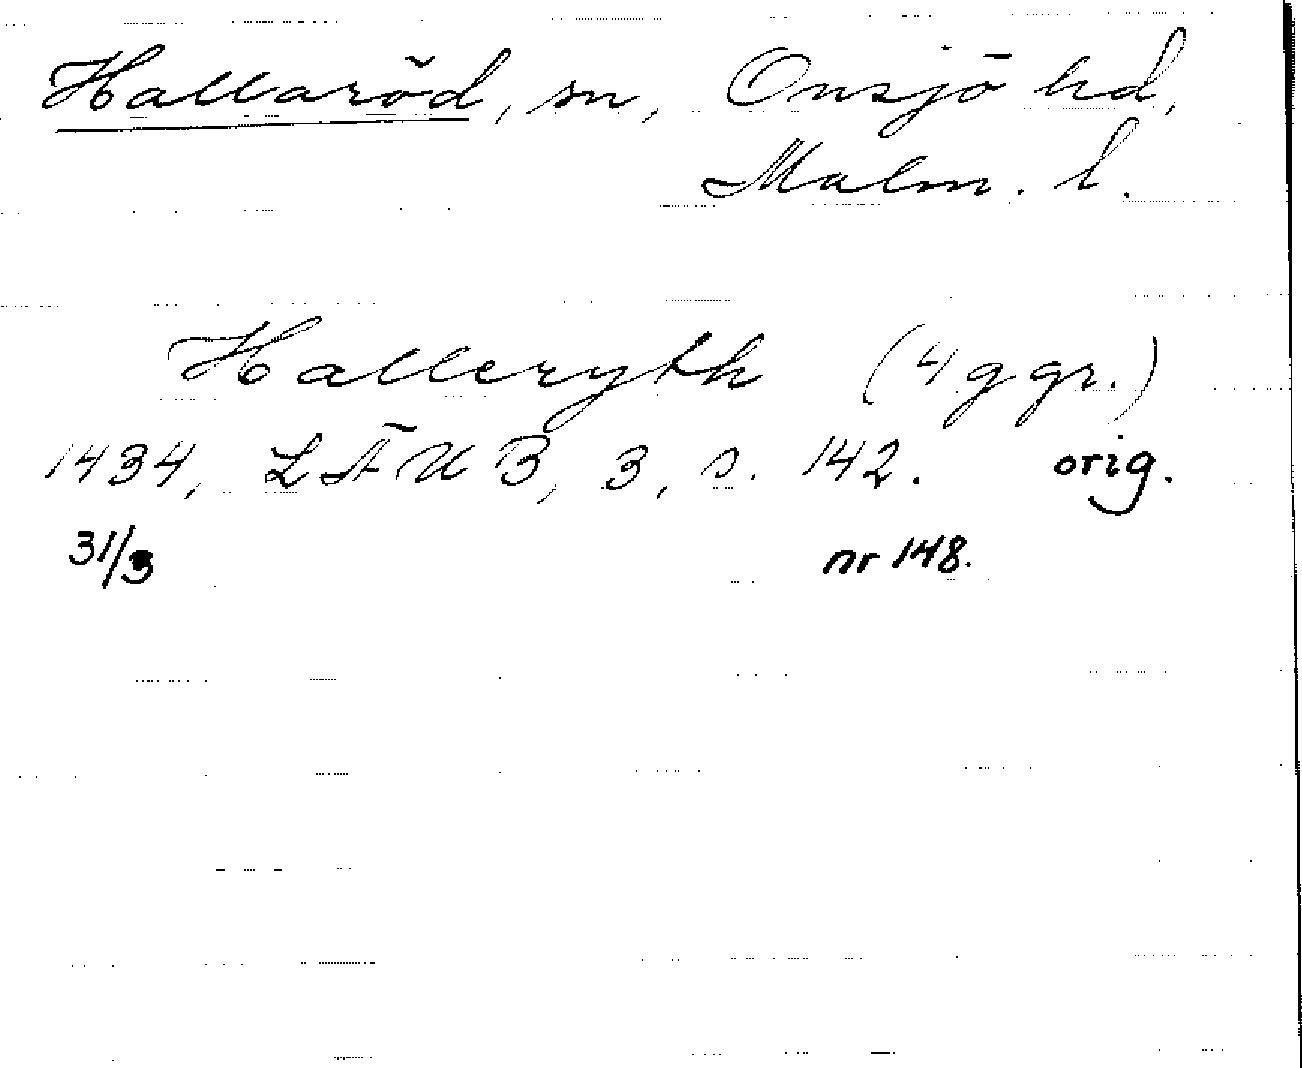 Hallaröd, sn, Onsjö hd,
Malm. l.
Halleryth (4 ggr.)
1434, LÄUB, 3, s. 142. orig.
31/3 nr 148.